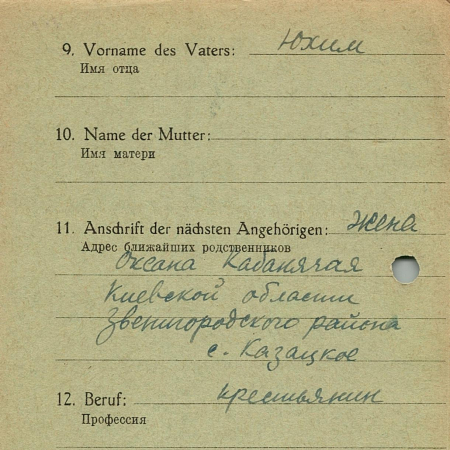 9. Vorname des Vaters: Юхим
Имя отца
10. Name der Mutter:
Имя матери
11. Anschrift der nächsten Angehörigen: жена
Адрес ближайших родственников
Оксана Кабанячая
Киевской области
Звенигородского района
с. Казацкое
12. Beruf: крестьянин
Профессия